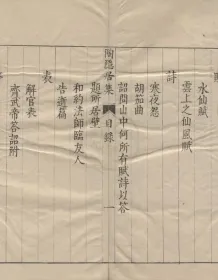 水仙賦
雲上之仙風賦
詩
寒夜怨
胡笳曲
詔問山中何所有賦詩以答
陶隱居集
目錄
一
題所居壁
和約法師臨友人
告逝篇
表
解官表
齊武帝答詔附